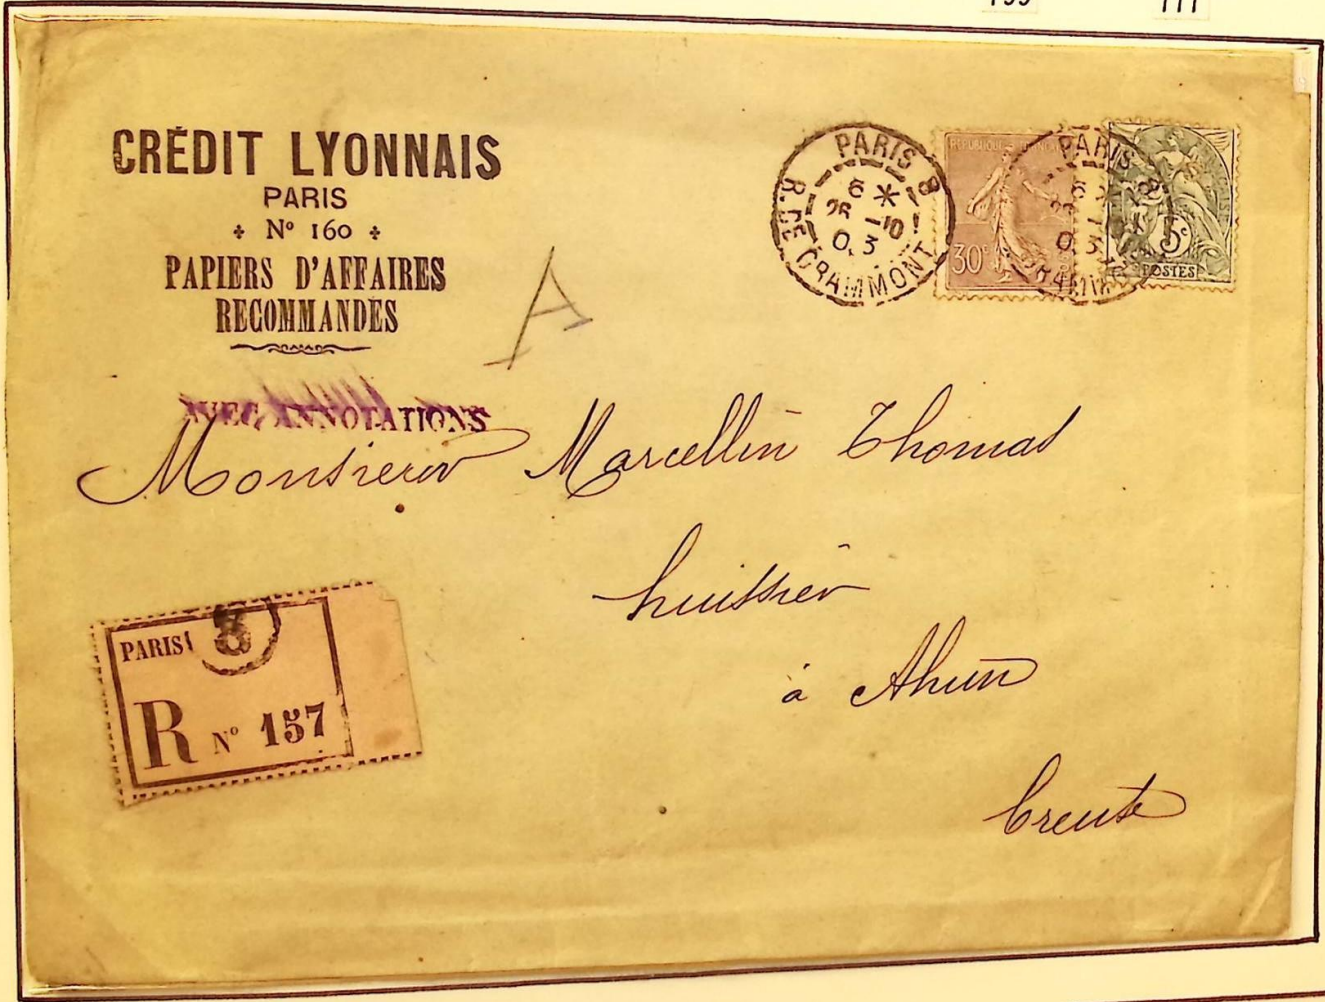 CRÉDIT LYONNAIS
PARIS
N° 160
PAPIERS D'AFFAIRES
RECOMMANDÉS
A
AVEC ANNOTATIONS
PARIS 8
6 *
26 -10
03
R. DE GRAMMONT
REPUBLIQUE FRANÇAISE
30c
PARIS 8
03
5c
POSTES
Monsieur Marcellin Thomas
huissier
à Ahun
Creuse
PARIS 8
R N° 157